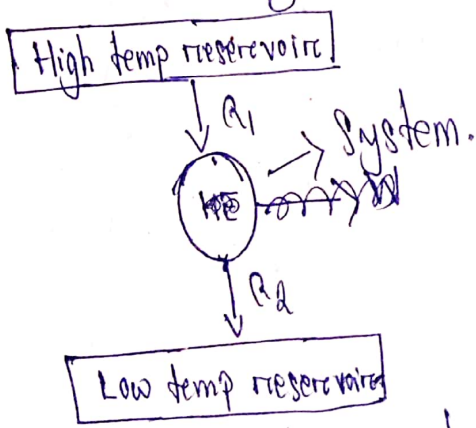 High temp reservoir
Q1
System.
HE
Q2
Low temp reservoir